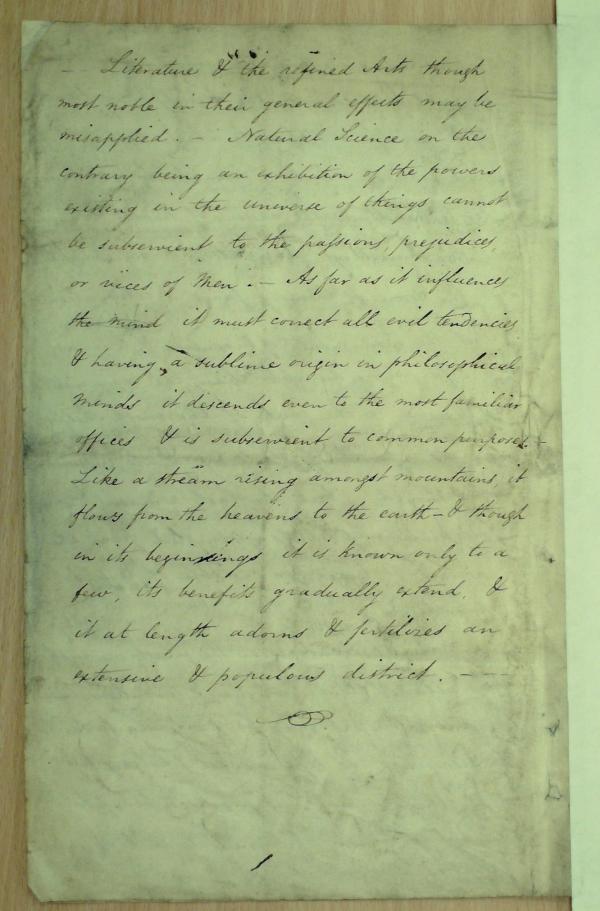 — Literature & the refined Arts though
most noble in their general effects may be
misapplied. — Natural Science on the
contrary being an exhibition of the powers
existing in the universe of things cannot
be subservient to the passions, prejudices,
or vices of Men. — As far as it influences
the mind it must correct all evil tendencies
& having a sublime origin in philosophical
minds it descends even to the most familiar
offices & is subservient to common purposes. —
Like a stream rising amongst mountains, it
flows from the heavens to the earth — & though
in its beginnings it is known only to a
few, its benefits gradually extend, &
it at length adorns & fertilizes an
extensive & populous district. — —